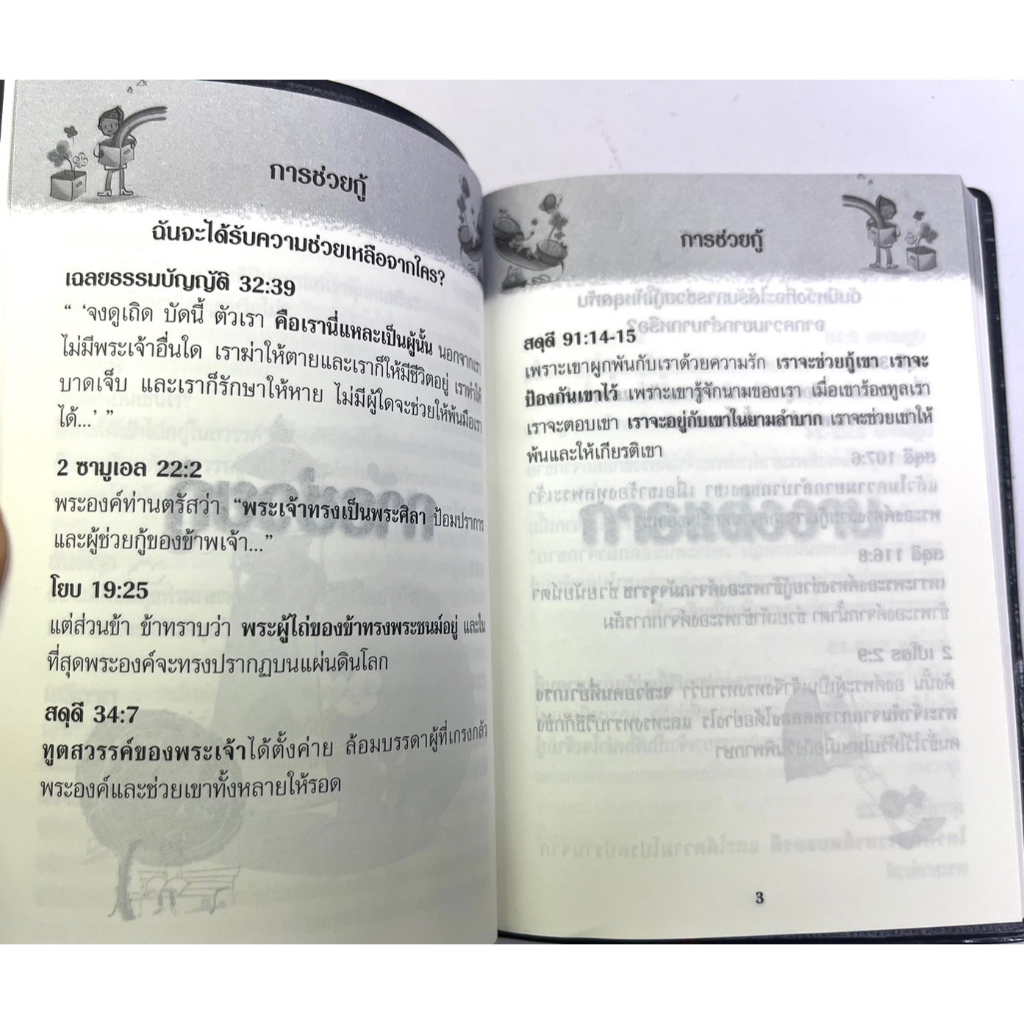 การช่วยกู้
ฉันจะได้รับความช่วยเหลือจากใคร?
เฉลยธรรมบัญญัติ 32:39
“ ‘จงดูเถิด บัดนี้ ตัวเรา คือเรานี่แหละเป็นผู้นั้น นอกจากเรา
ไม่มีพระเจ้าอื่นใด เราฆ่าให้ตายและเราก็ให้มีชีวิตอยู่ เราทำให้
บาดเจ็บ และเราก็รักษาให้หาย ไม่มีผู้ใดจะช่วยให้พ้นมือเรา
ได้...’ ”
2 ซามูเอล 22:2
พระองค์ท่านตรัสว่า “พระเจ้าทรงเป็นพระศิลา ป้อมปราการ
และผู้ช่วยกู้ของข้าพเจ้า...”
โยบ 19:25
แต่ส่วนข้า ข้าทราบว่า พระผู้ไถ่ของข้าทรงพระชนม์อยู่ และใน
ที่สุดพระองค์จะทรงปรากฏบนแผ่นดินโลก
สดุดี 34:7
ทูตสวรรค์ของพระเจ้าได้ตั้งค่าย ล้อมบรรดาผู้ที่เกรงกลัว
พระองค์และช่วยเขาทั้งหลายให้รอด
การช่วยกู้
สดุดี 91:14-15
เพราะเขาผูกพันกับเราด้วยความรัก เราจะช่วยกู้เขา เราจะ
ป้องกันเขาไว้ เพราะเขารู้จักนามของเรา เมื่อเขาร้องทูลเรา
เราจะตอบเขา เราจะอยู่กับเขาในยามลำบาก เราจะช่วยเขาให้
พ้นและให้เกียรติเขา
3